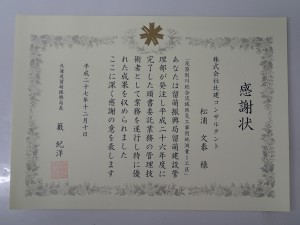 感謝状
株式会社北建コンサルタント
松浦 文泰 様
あなたは留萌振興局留萌建設管
理部が発注し平成二十六年度に
完了した頭書委託業務の管理技
術者として業務を遂行し特に優
れた成果を収められました
ここに深く感謝の意を表します
平成二十七年十二月十日
北海道留萌振興局長
籔 紀洋